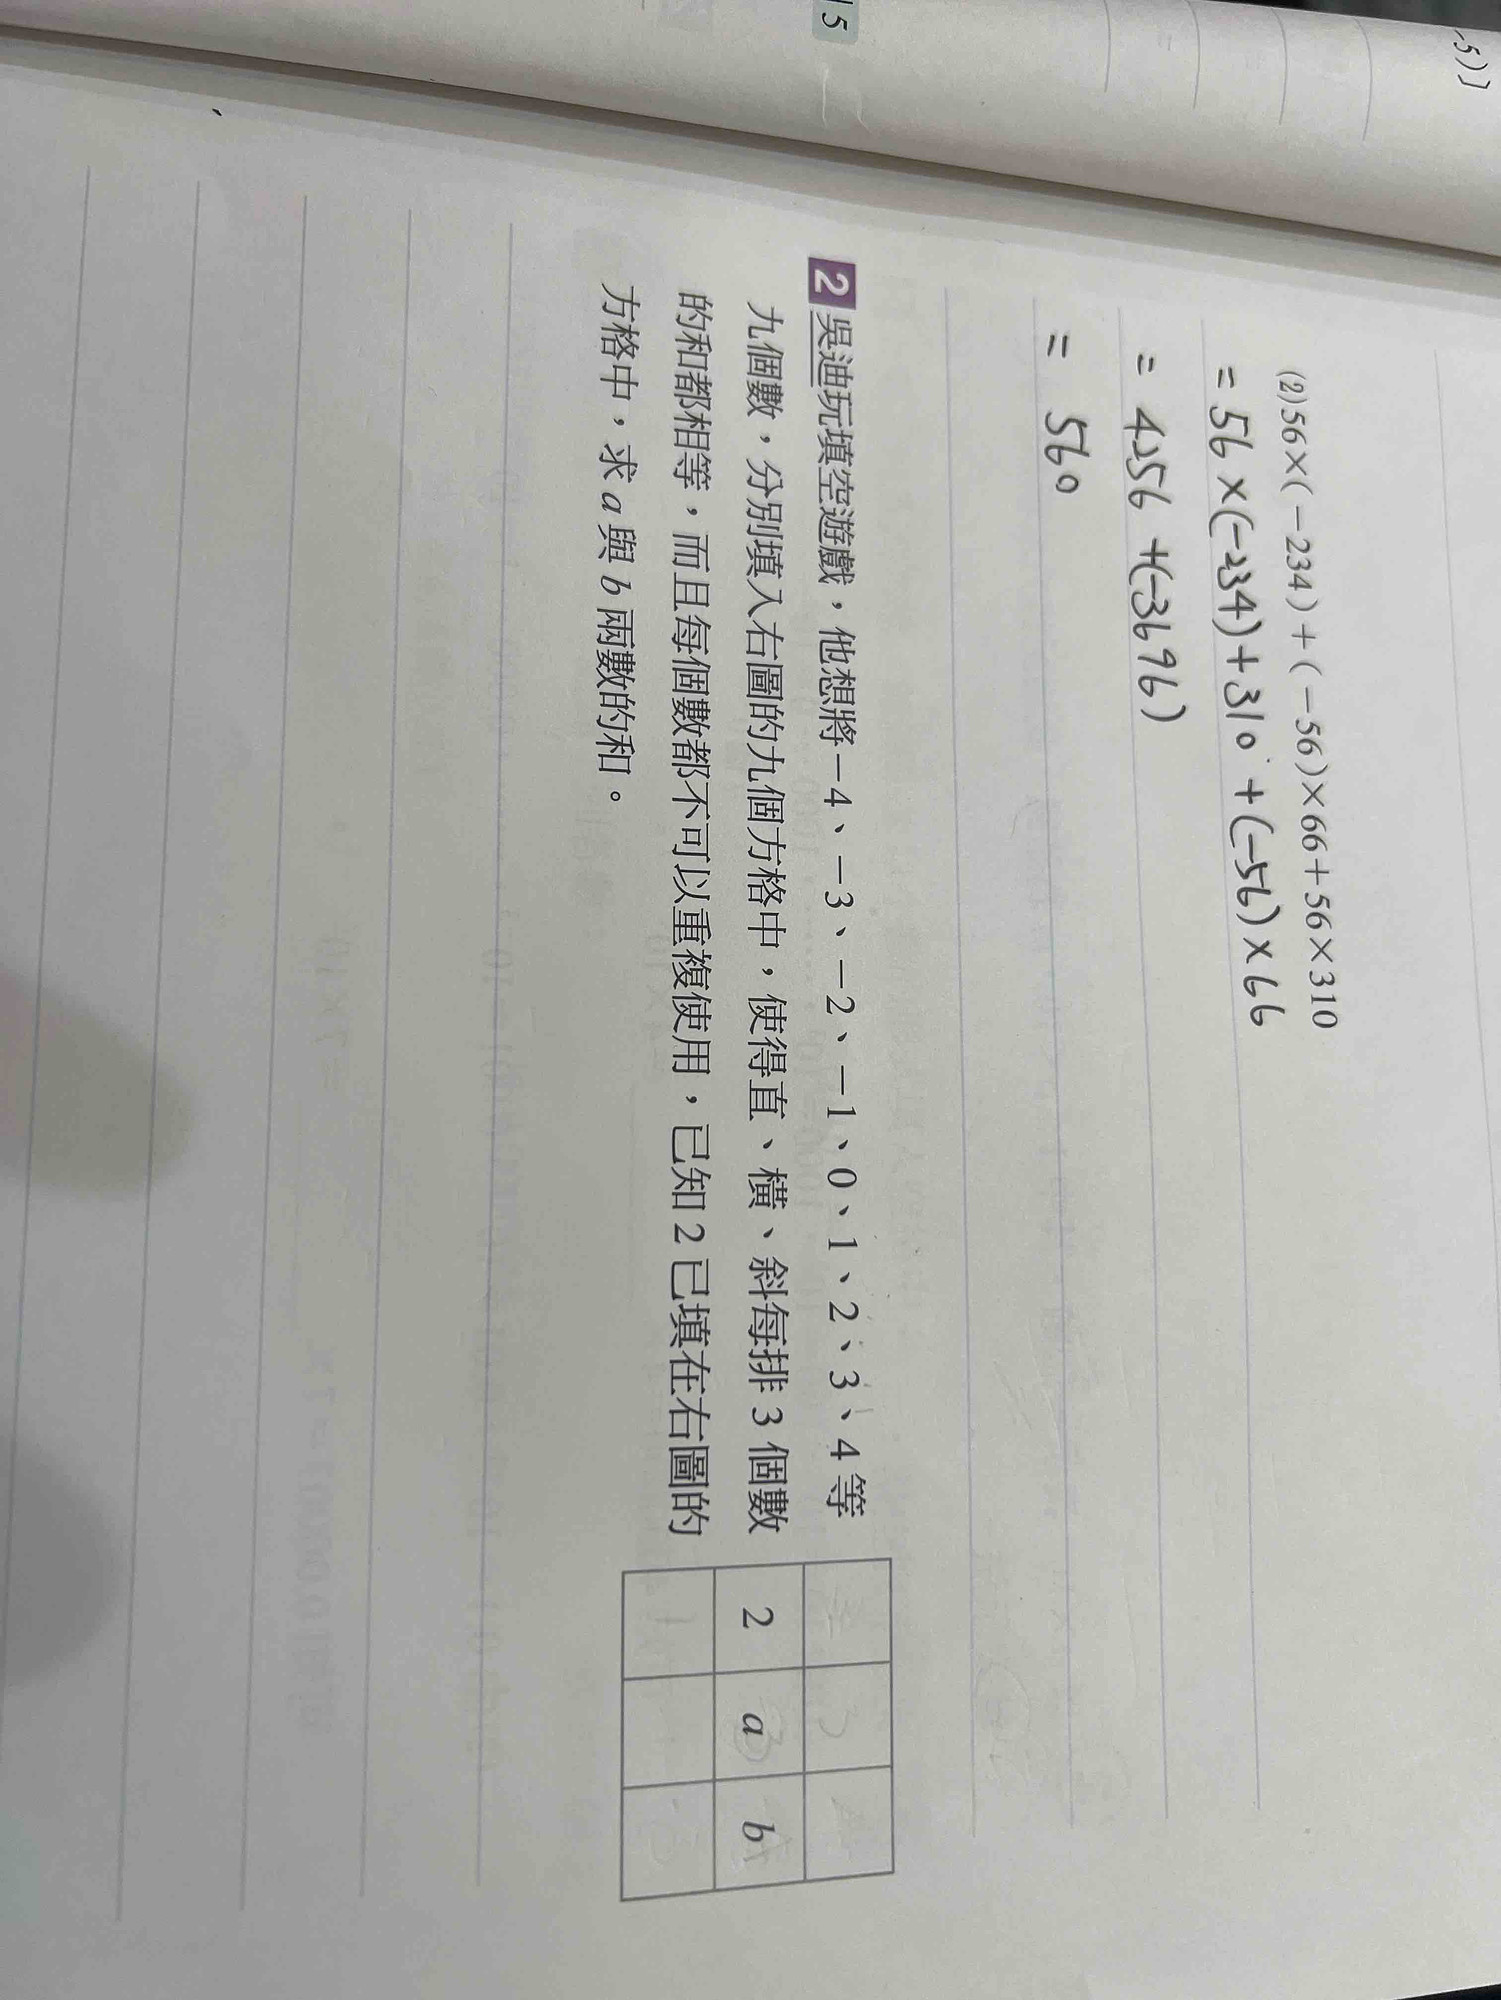 -5)]
15
(2)56×(－234)＋(－56)×66＋56×310
= 56 ×(-234)+310 +(-56)×66
= 4256 +(-3696)
= 560
2 吳迪玩填空遊戲，他想將－4、－3、－2、－1、0、1、2、3、4 等
九個數，分別填入右圖的九個方格中，使得直、橫、斜每排 3 個數
的和都相等，而且每個數都不可以重複使用，已知 2 已填在右圖的
方格中，求 a 與 b 兩數的和。
2 a b